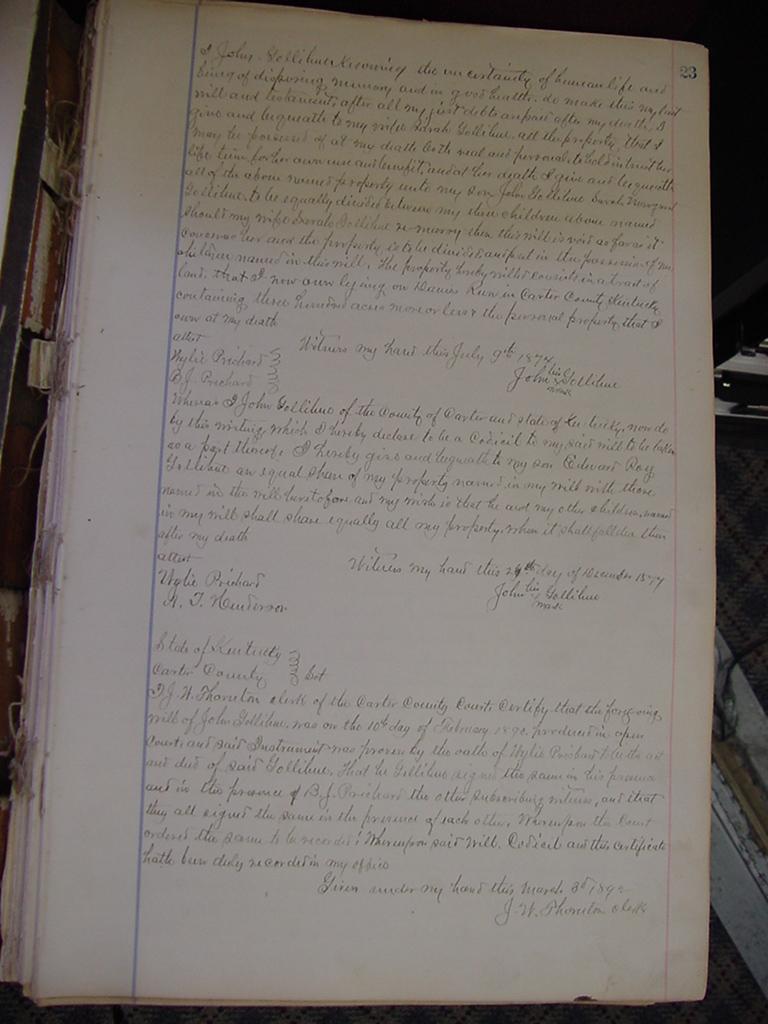 23
I John Gollihue knowing the uncertainty of human life and
being of disposing memory and in good health. do make this my last
will and testament, after all my just debts are paid after my death. I
give and bequeath to my wife Sarah Gollihue. all the property, that I
may be possessed of at my death both real and personal to hold in trust her
life time for her own use and benefit, and at her death I give and bequeath
all of the above named property unto my son John Gollihue Sarah
Gollihue. to be equally divided between my three children above named
Should my wife Sarah Gollihue re marry then this will is void as far as it
concerns her and the property is to be divided and put in the possession of my
children named in this will. The property hereby willed consists in a tract of
land. that I now own lying on Danes Run in Carter County Kentucky
containing three hundred acres more or less & the personal property that I
own at my death
attest
Witness my hand this July 9th 1874
Wylie Prichard
John his Gollihue
mark
B. J. Prichard
Whereas I John Gollihue of the County of Carter and state of Kentucky, now do
by this writing which I hereby declare to be a Codicil to my said will to be taken
as a part thereof. I hereby give and bequeath to my son Edward Roy
Gollihue an equal share of my property named in my will with those
named in the will heretofore and my wish is that he and my other children, named
in my will shall share equally all my property. when it shall fall to them
after my death
attest
Witness my hand this day of December 1877
Wylie Prichard
John his Gollihue
mark
H. T. Henderson
State of Kentucky
Carter County Sct
I J. W. Thornton clerk of the Carter County Court. Certify that the foregoing
will of John Gollihue. was on the 10th day of February 1890. produced in open
Court. and said Instrument was proven by the oath of Wylie Prichard to be the act
and deed of said Gollihue. That he Gollihue signed the same in his presence
and in the presence of B. J. Prichard the other subscribing witness, and that
they all signed the same in the presence of each other. Whereupon the Court
ordered the same to be recorded. Whereupon said Will. Codicil and this certificate
hath been duly recorded in my office
Given under my hand this March 3d
J. W. Thornton clerk